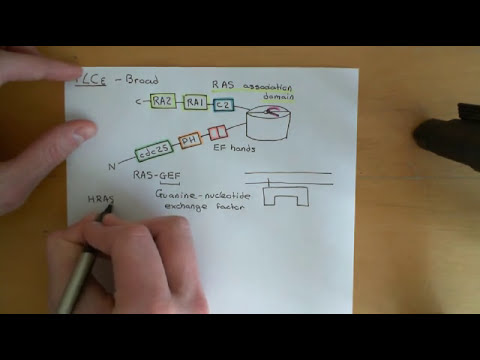 PLCε - Broad
RAS association
domain
C- RA2 RA1 C2
cdc25 PH
EF hands
N
RAS-GEF
HRAS
Guanine-nucleotide
exchange factor